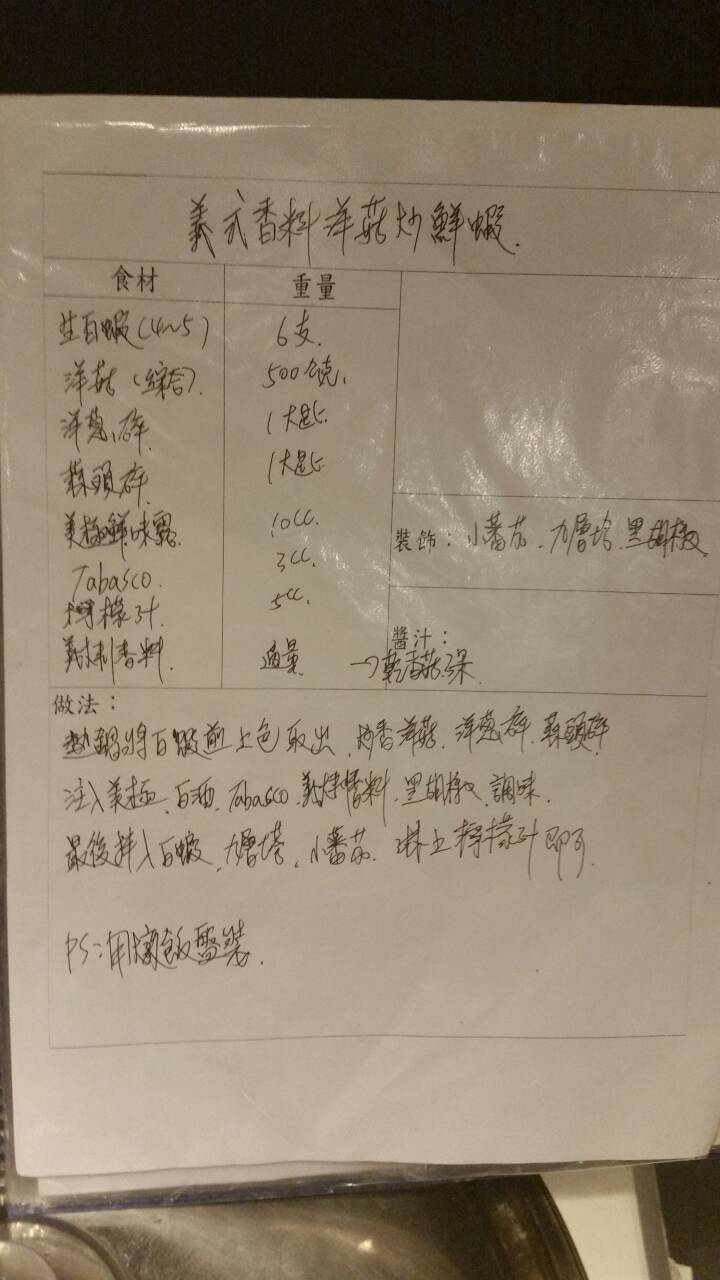 義式香料洋菇炒鮮蝦.
食材 重量
生白蝦(4~5) 6支.
洋菇(綜合). 500克.
洋蔥碎. 1大匙.
蒜頭碎. 1大匙.
美極鮮味露. 10cc.
Tabasco. 3cc.
檸檬汁. 5cc.
義式香料. 適量
裝飾: 小蕃茄. 九層塔. 黑胡椒.
醬汁:
→乾香菇
做法:
熱鍋將白蝦煎上色取出, 炒香洋菇. 洋蔥碎. 蒜頭碎
注入美極. 白酒. Tabasco. 義式香料. 黑胡椒. 調味.
最後拌入白蝦. 九層塔. 小蕃茄. 淋上檸檬汁即可.
PS:用燉飯盤裝.